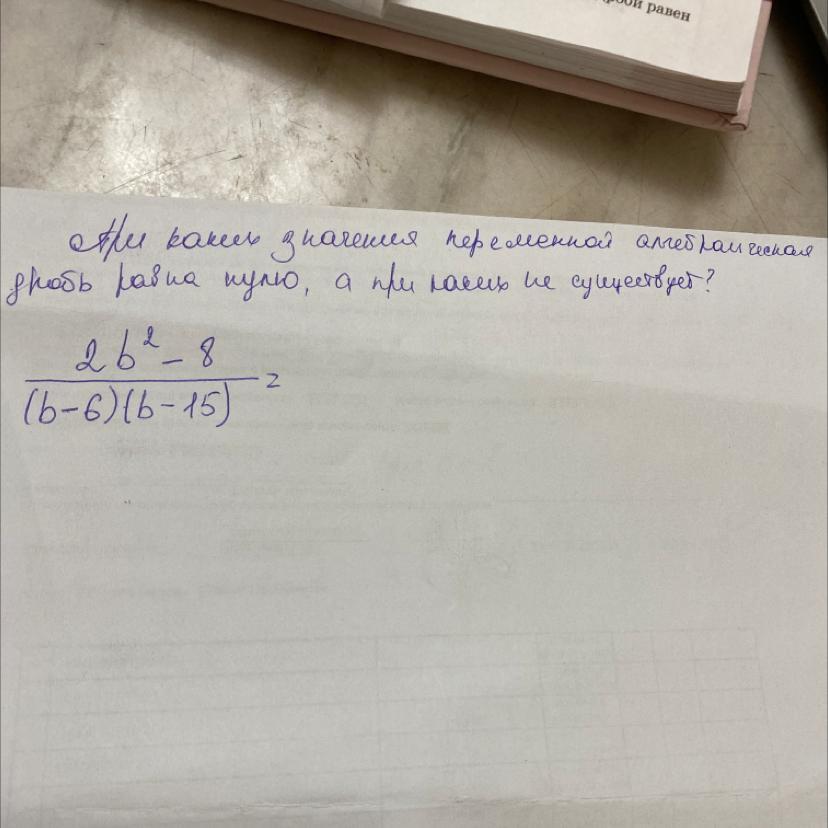 равен
При каких значения переменной алгебраическая
дробь равна нулю, а при каких не существует?
2b² - 8
(b-6)(b-15) =